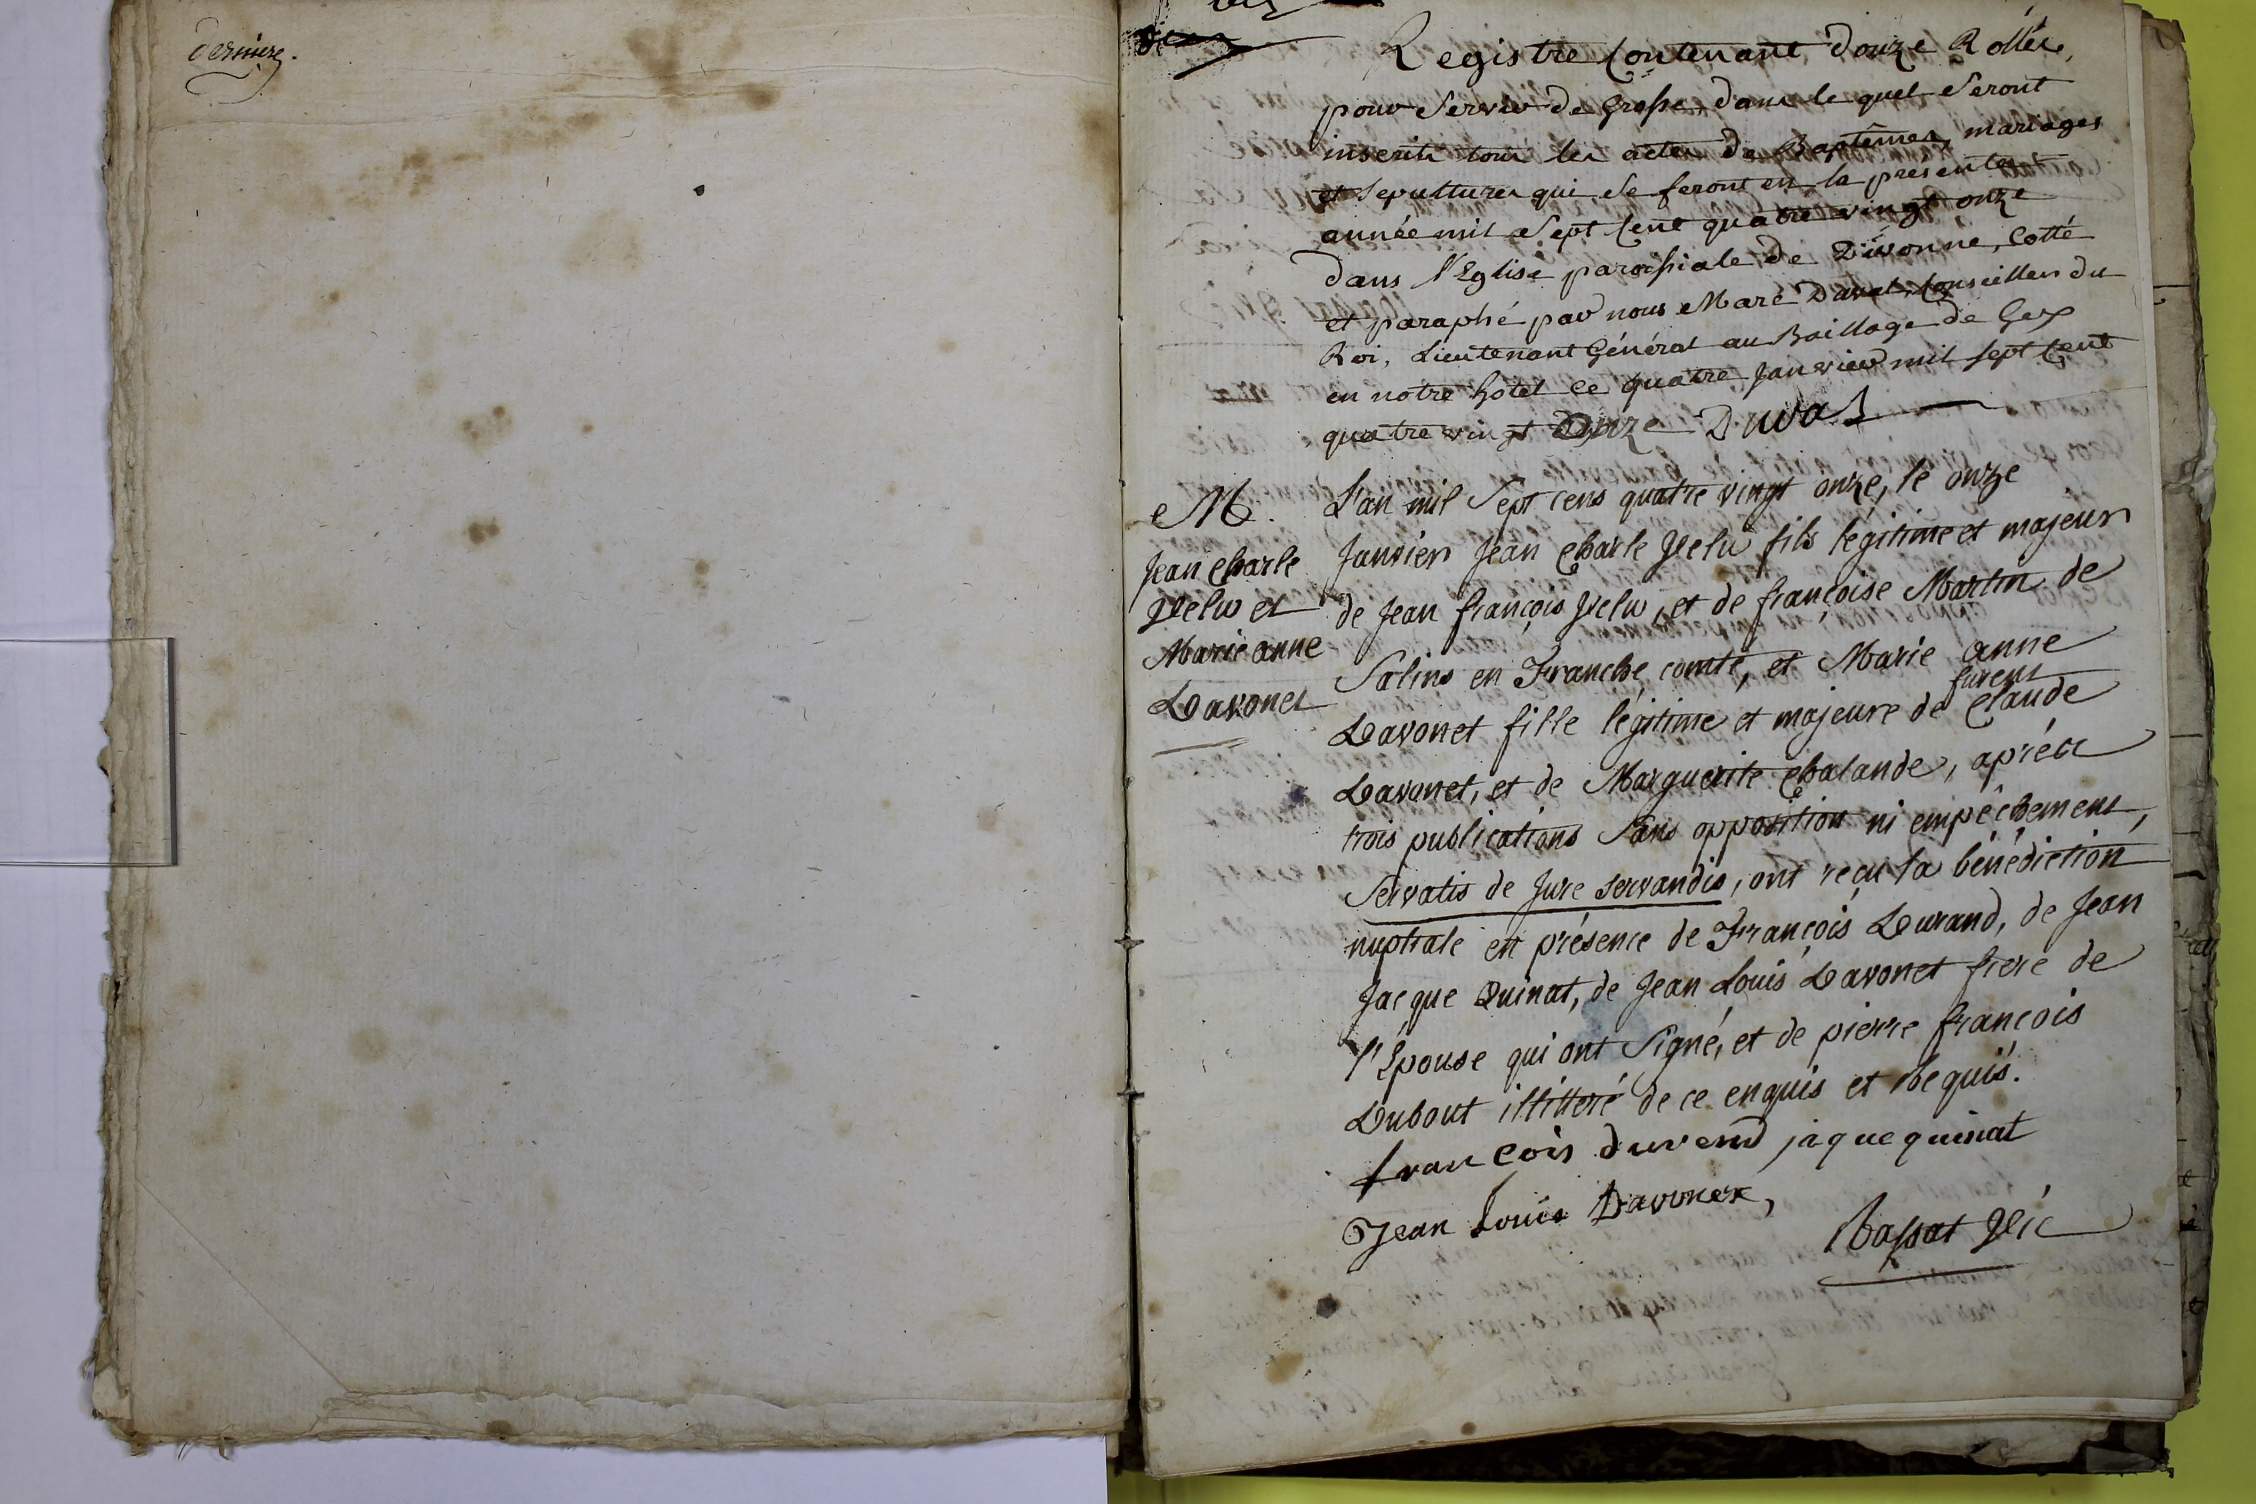 derniere.
Registre Contenant douze Rolles,
pour Servir de Grosse, dans le quel Seront
inscrits tous les actes de Baptêmes, mariages
et Sepultures qui Se feront en la presente
année mil Sept Cent quatre vingt onze
dans l'Eglise paroissiale de Divonne, Cotté
et paraphé par nous Marc Duval, Conseiller du
Roi, Lieutenant Général au Baillage de Gex
en notre hotel ce quatre Janvier mil sept Cent
quatre vingt Onze Duval
M.
Jean Charle
Velu et
Marie anne
Davonet
L'an mil Sept cens quatre vingt onze, le onze
Janvier Jean Charle Velu fils légitime et majeur
de Jean françois Velu, et de françoise Martin de
Salins en Franche comté, et Marie anne
furent
Davonet fille légitime et majeure de Claude
Davonet, et de Marguerite Chalande, après
trois publications Sans opposition ni empêchement,
Servatis de Jure servandis, ont reçu la bénédiction
nuptiale en présence de François Durand, de Jean
Jacque Quinat, de Jean Louis Davonet frere de
l'Épouse qui ont Signé, et de pierre françois
Dubout illitteré de ce enquis et Requis.
francois durend jaque quinat
Jean Louis Davonex,
Bassat Vic